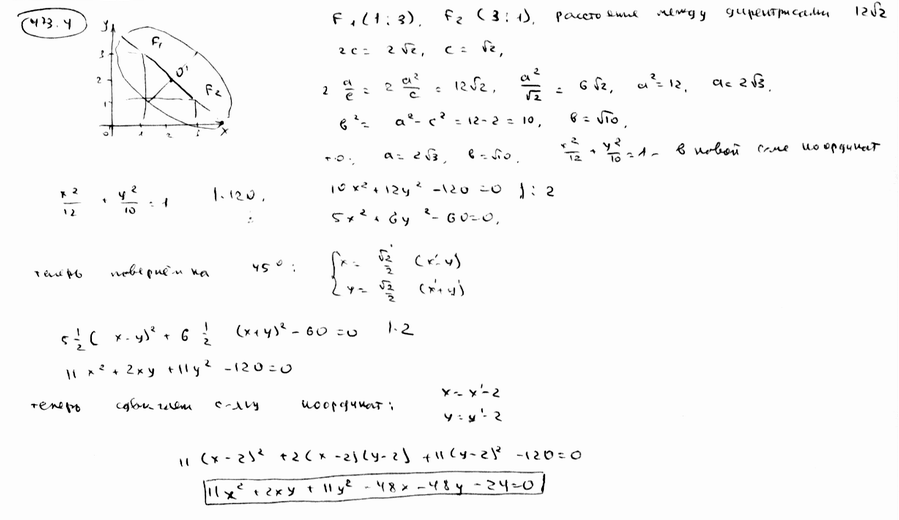 473.4
F₁ (1; 3), F₂ (3; 1), расстояние между директрисами 12√2
2c = 2√2, c = √2,
2 a/e = 2 a²/c = 12√2, a²/√2 = 6√2, a² = 12, a = 2√3,
b² = a² - c² = 12 - 2 = 10, b = √10,
т.о. a = 2√3, b = √10, x²/12 + y²/10 = 1 - в новой с-ме координат
x²/12 + y²/10 = 1 |·120, 10x² + 12y² - 120 = 0 |: 2
5x² + 6y² - 60 = 0,
теперь повернём на 45°: { x = √2/2 (x' - y')
y = √2/2 (x' + y')
5 1/2 (x - y)² + 6 1/2 (x + y)² - 60 = 0 |·2
11x² + 2xy + 11y² - 120 = 0
теперь сдвигаем с-му координат: x = x' - 2
y = y' - 2
11 (x - 2)² + 2 (x - 2)(y - 2) + 11 (y - 2)² - 120 = 0
11x² + 2xy + 11y² - 48x - 48y - 24 = 0
y
3
2
1
0
1
2
x
F₁
O'
F₂